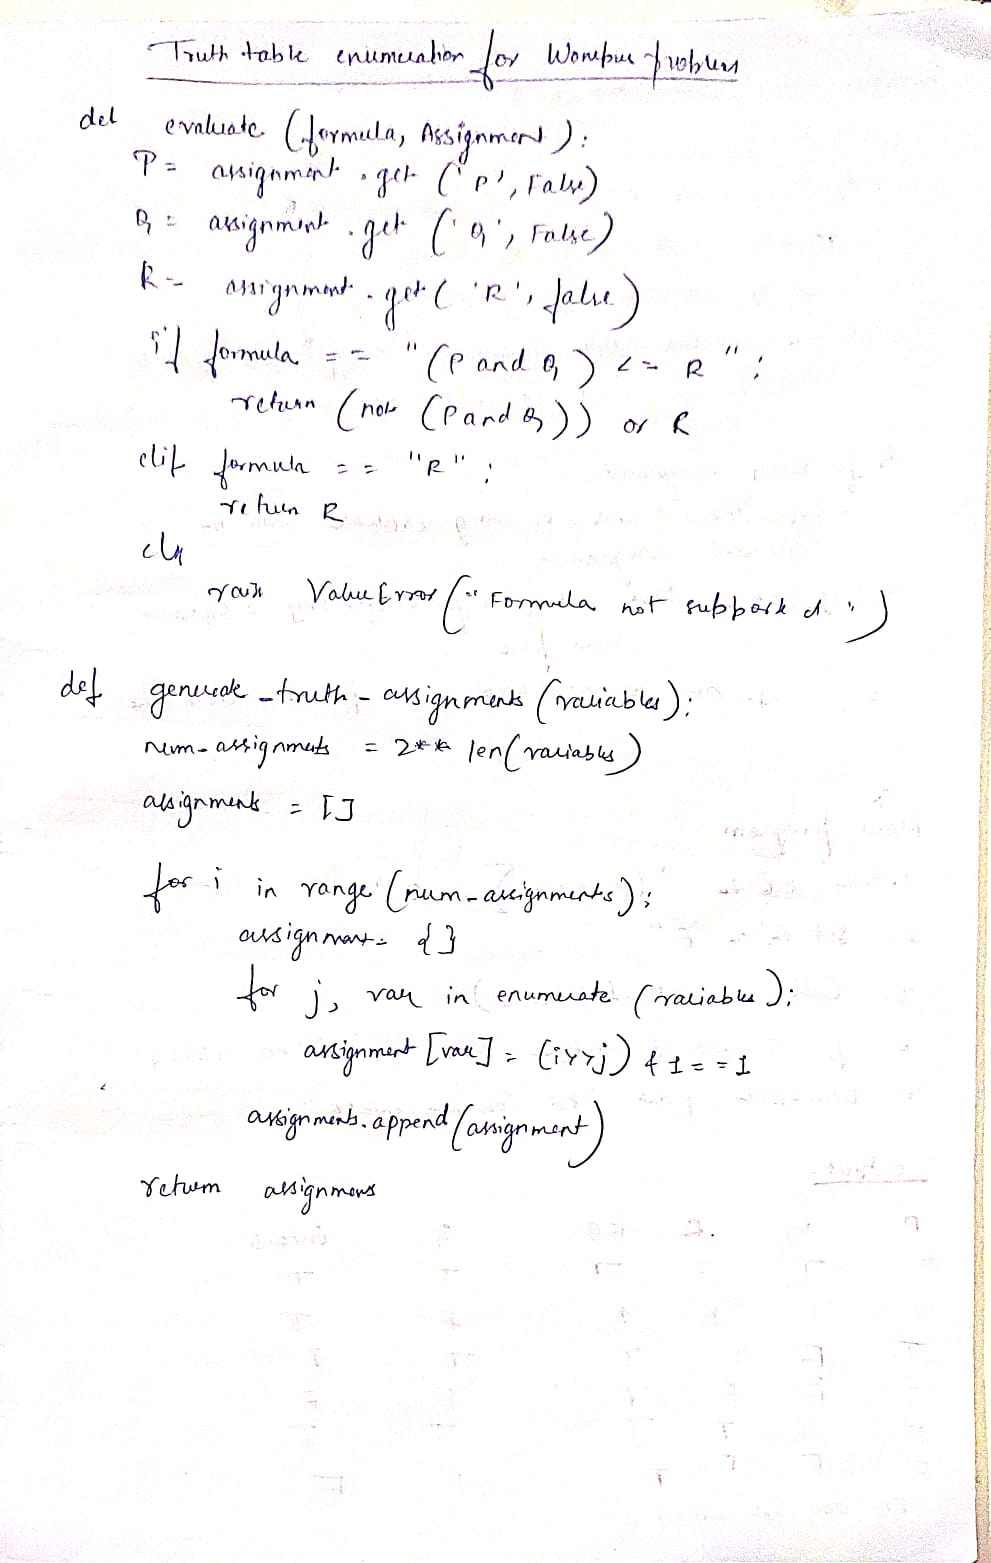 Truth table enumeration for Wompus problem
def evaluate (formula, Assignment):
P = assignment.get ('P', False)
Q = assignment.get ('Q', False)
R = assignment.get ('R', false)
if formula == "(P and Q) <= R":
return (not (P and Q)) or R
elif formula == "R":
return R
else
raise ValueError ("Formula not supported.")
def generate_truth_assignments (variables):
num-assignments = 2** len(variables)
assignments = []
for i in range (num-assignments):
assignment = {}
for j, var in enumerate (variables):
assignment [var] = (i>>j) & 1 == 1
assignments.append (assignment)
return assignments